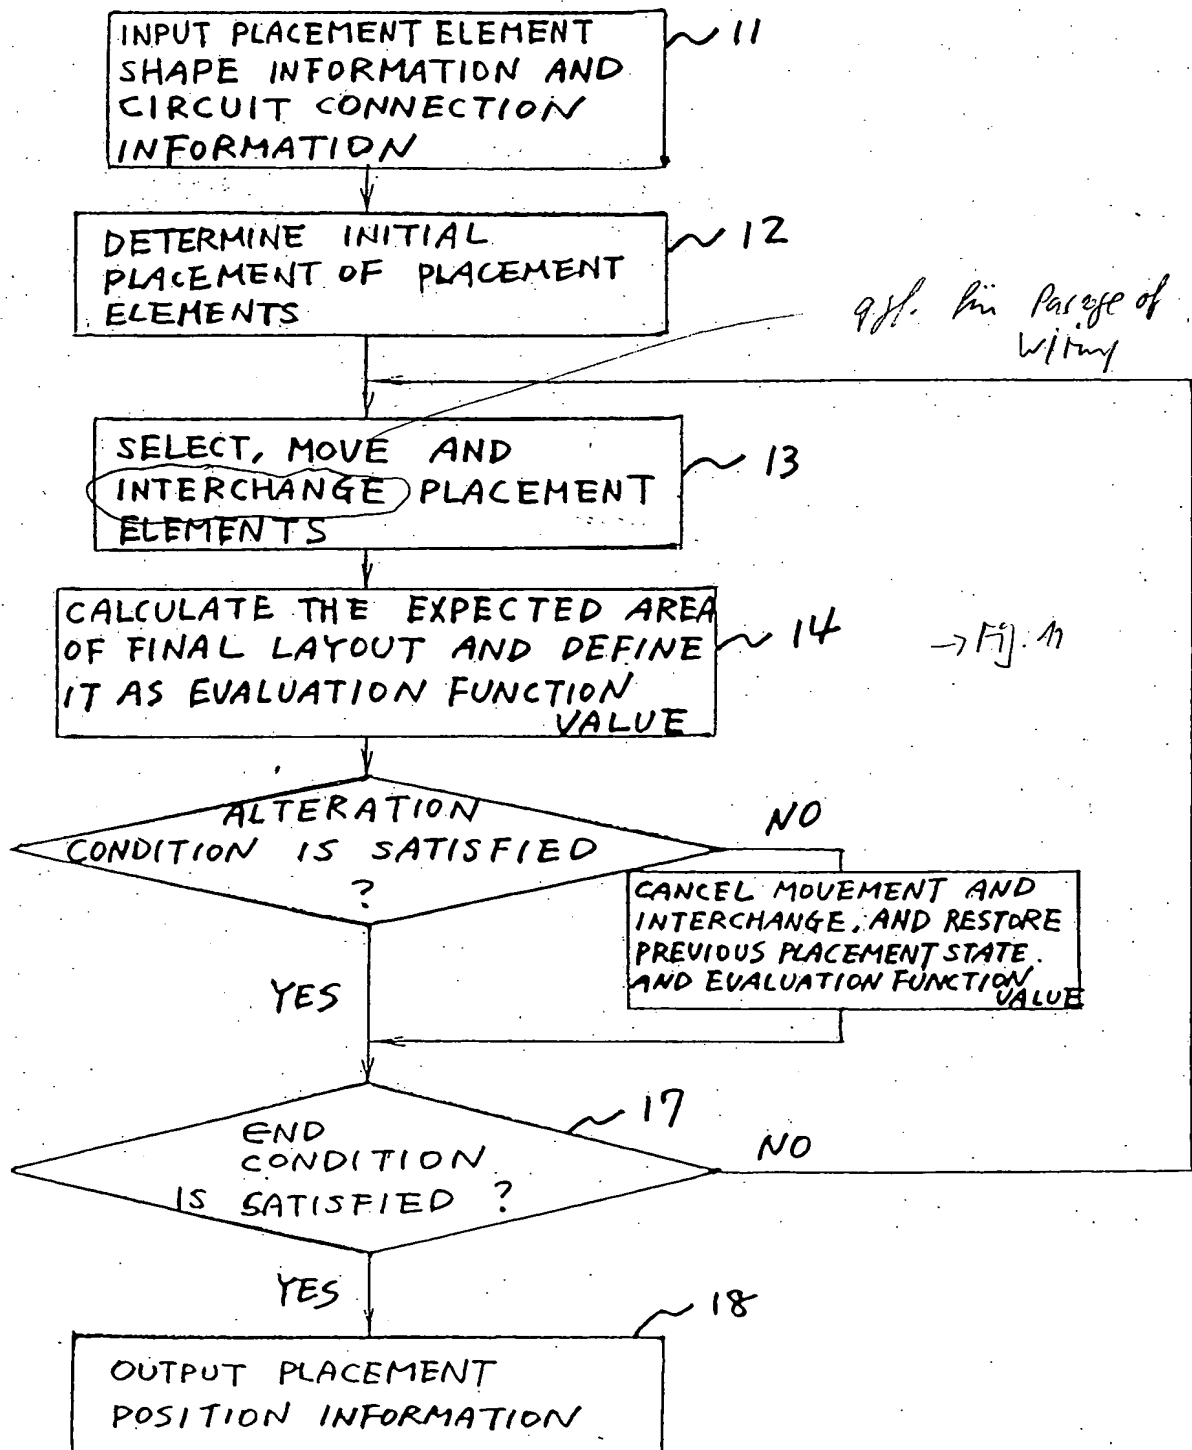 INPUT PLACEMENT ELEMENT
SHAPE INFORMATION AND
CIRCUIT CONNECTION
INFORMATION
11
DETERMINE INITIAL
PLACEMENT OF PLACEMENT
ELEMENTS
12
of
SELECT, MOVE AND
INTERCHANGE PLACEMENT
ELEMENTS
13
CALCULATE THE EXPECTED AREA
OF FINAL LAYOUT AND DEFINE
IT AS EVALUATION FUNCTION
VALUE
14
→ Fig. 11
ALTERATION
CONDITION IS SATISFIED
?
NO
CANCEL MOVEMENT AND
INTERCHANGE, AND RESTORE
PREVIOUS PLACEMENT STATE.
AND EVALUATION FUNCTION
VALUE
YES
17
END
CONDITION
IS SATISFIED ?
NO
YES
18
OUTPUT PLACEMENT
POSITION INFORMATION